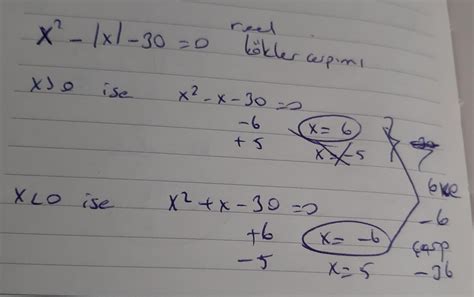 x² - |x| - 30 = 0 reel
kökler çarpımı
x>0 ise x² - x - 30 = 0
-6 x = 6
+5 x = -5
6 ve
x<0 ise x² + x - 30 = 0 -6
+6 x = -6 çarp
-5 x = 5 -36